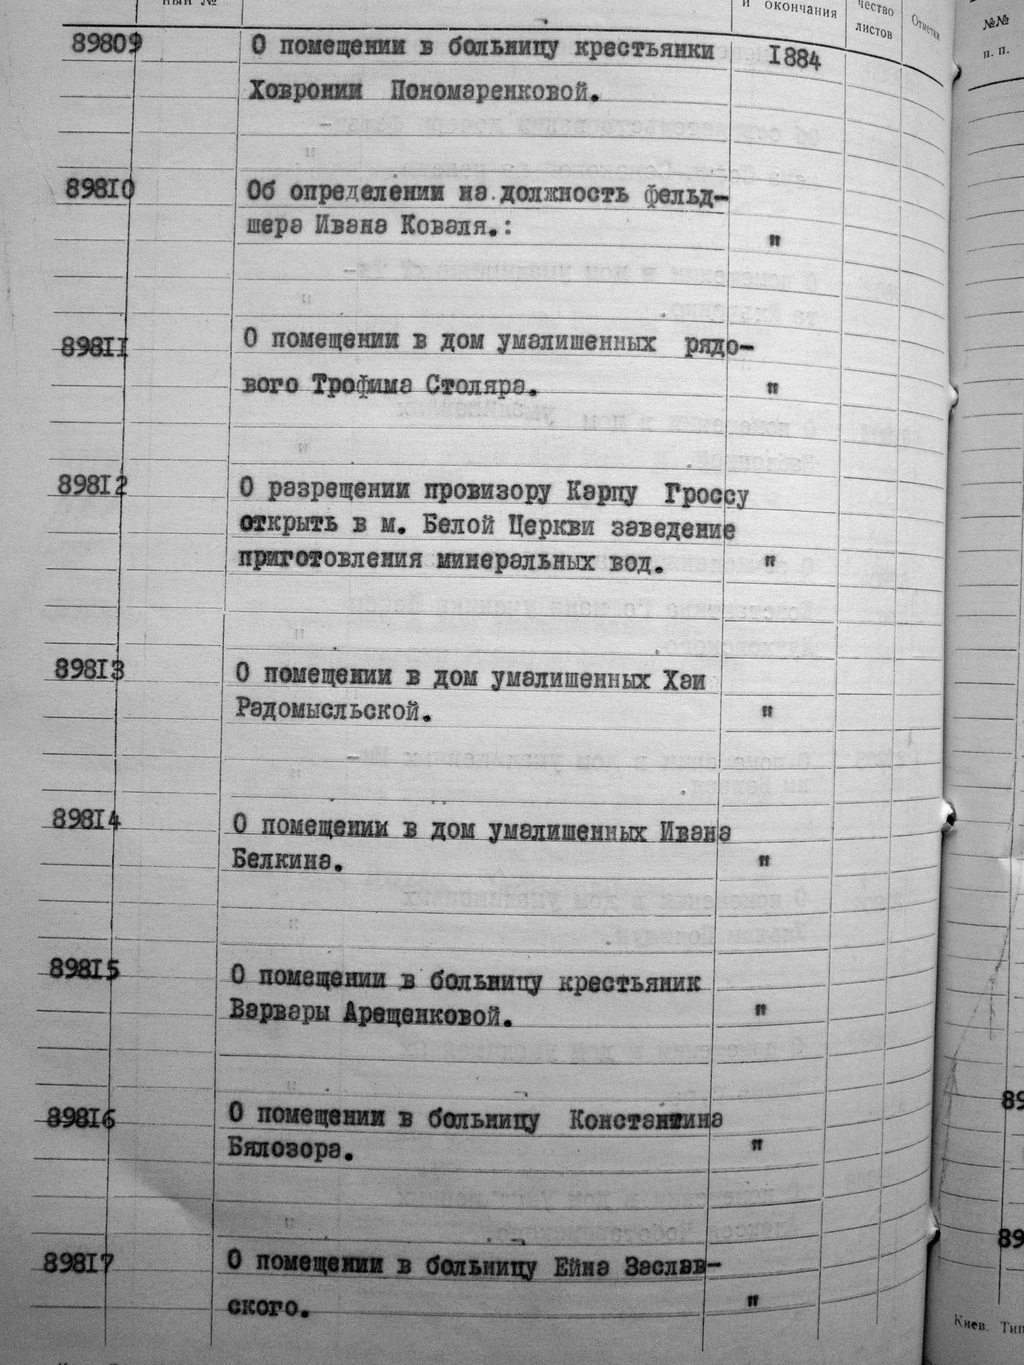 ный №
и окончания
чество
листов
Отметки
№№
п. п.
89809 О помещении в больницу крестьянки 1884
Ховронии Пономаренковой.
89810 Об определении на должность фельд-
шера Ивана Коваля.: "
89811 О помещении в дом умалишенных рядо-
вого Трофима Столяра. "
89812 О разрещении провизору Карпу Гроссу
открыть в м. Белой Церкви заведение
приготовления минеральных вод. "
89813 О помещении в дом умалишенных Хаи
Радомысльской. "
89814 О помещении в дом умалишенных Ивана
Белкина. "
89815 О помещении в больницу крестьяник
Варвары Арещенковой. "
89816 О помещении в больницу Константина
Бялозора. "
89817 О помещении в больницу Ейна Заслав-
ского. "
89
89
Киев. Тип